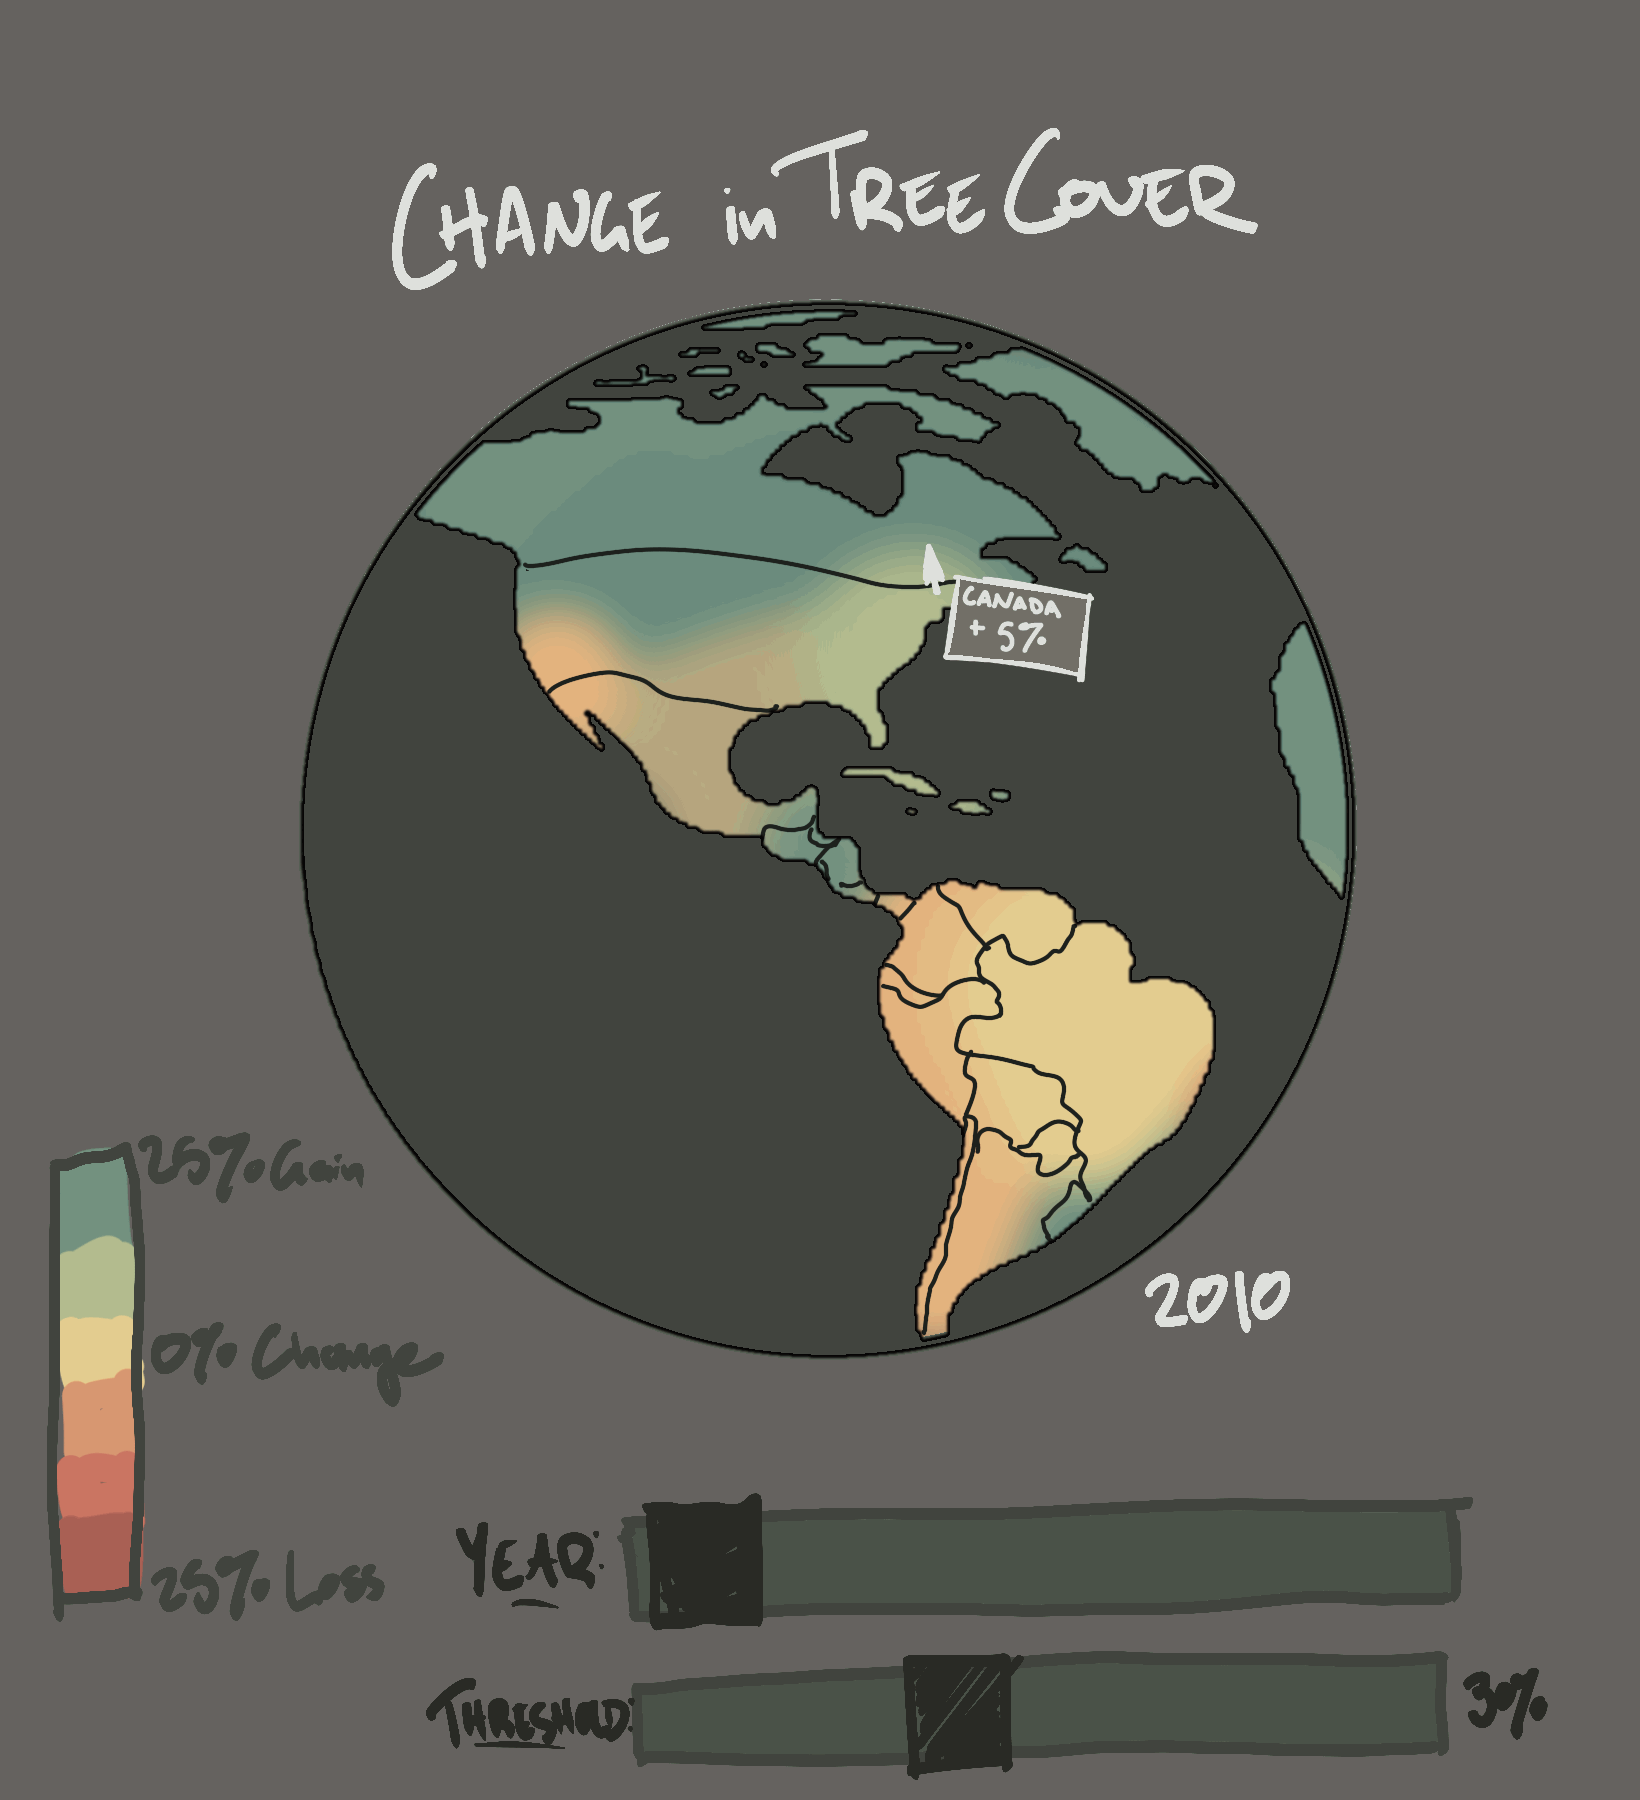 CHANGE in TREE COVER
CANADA
+ 5%
2010
25% Gain
0% Change
25% Loss
YEAR:
THRESHOLD:
30%